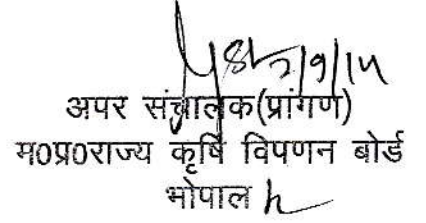 2/9/14
अपर संचालक(प्रांगण)
म0प्र0राज्य कृषि विपणन बोर्ड
भोपाल